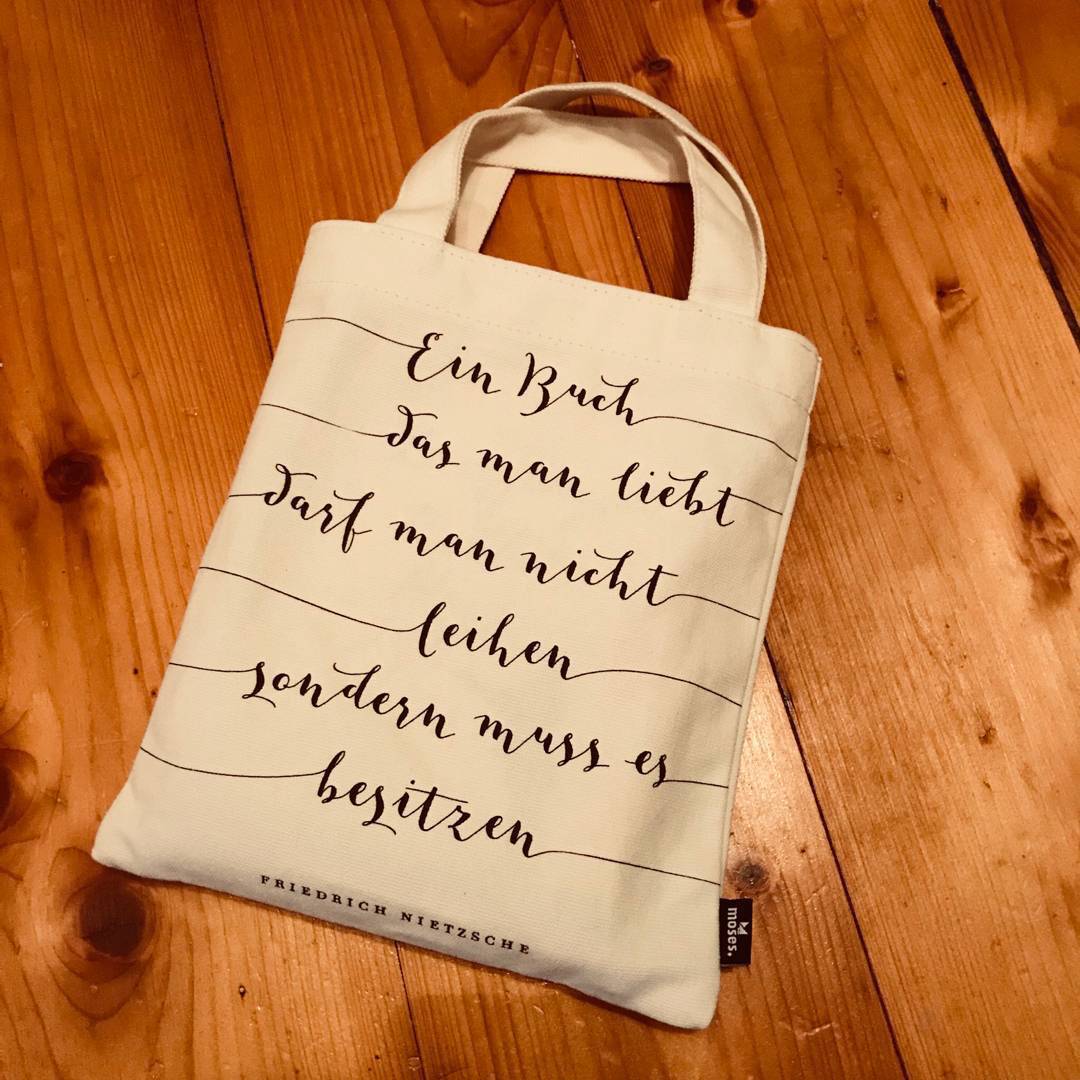 Ein Buch
das man liebt
darf man nicht
leihen
sondern muss es
besitzen
FRIEDRICH NIETZSCHE
moses.